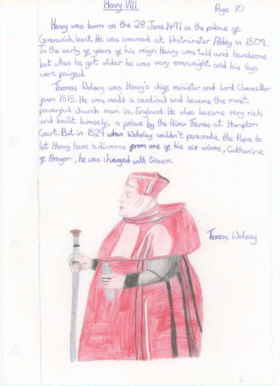 Henry VIII
Page 10
Henry was born on the 28 June 1491 in the palace of
Greenwich, Kent. He was crowned at Westminster Abbey in 1509.
In the early years of his reign Henry was tall and handsome
but when he got older he was very overweight and his legs
were
Thomas Wolsey was Henry's chief minister and Lord Chancellor
from 1515. He was made a cardinal and became the most
powerful church man in England. He also became very rich
and built himself a palace by the River Thames at Hampton
Court. But in 1529 when Wolsey couldn't persuade the Pope to
let Henry have a divorce from one of his six wives, Catherine
of Aragon, he was charged with treason.
Thomas Wolsey